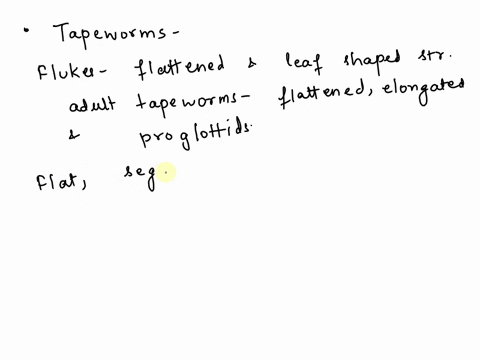 • Tapeworms -
Flukes - flattened & leaf shaped str.
adult tapeworms - flattened, elongates
& proglottids.
flat, seg.